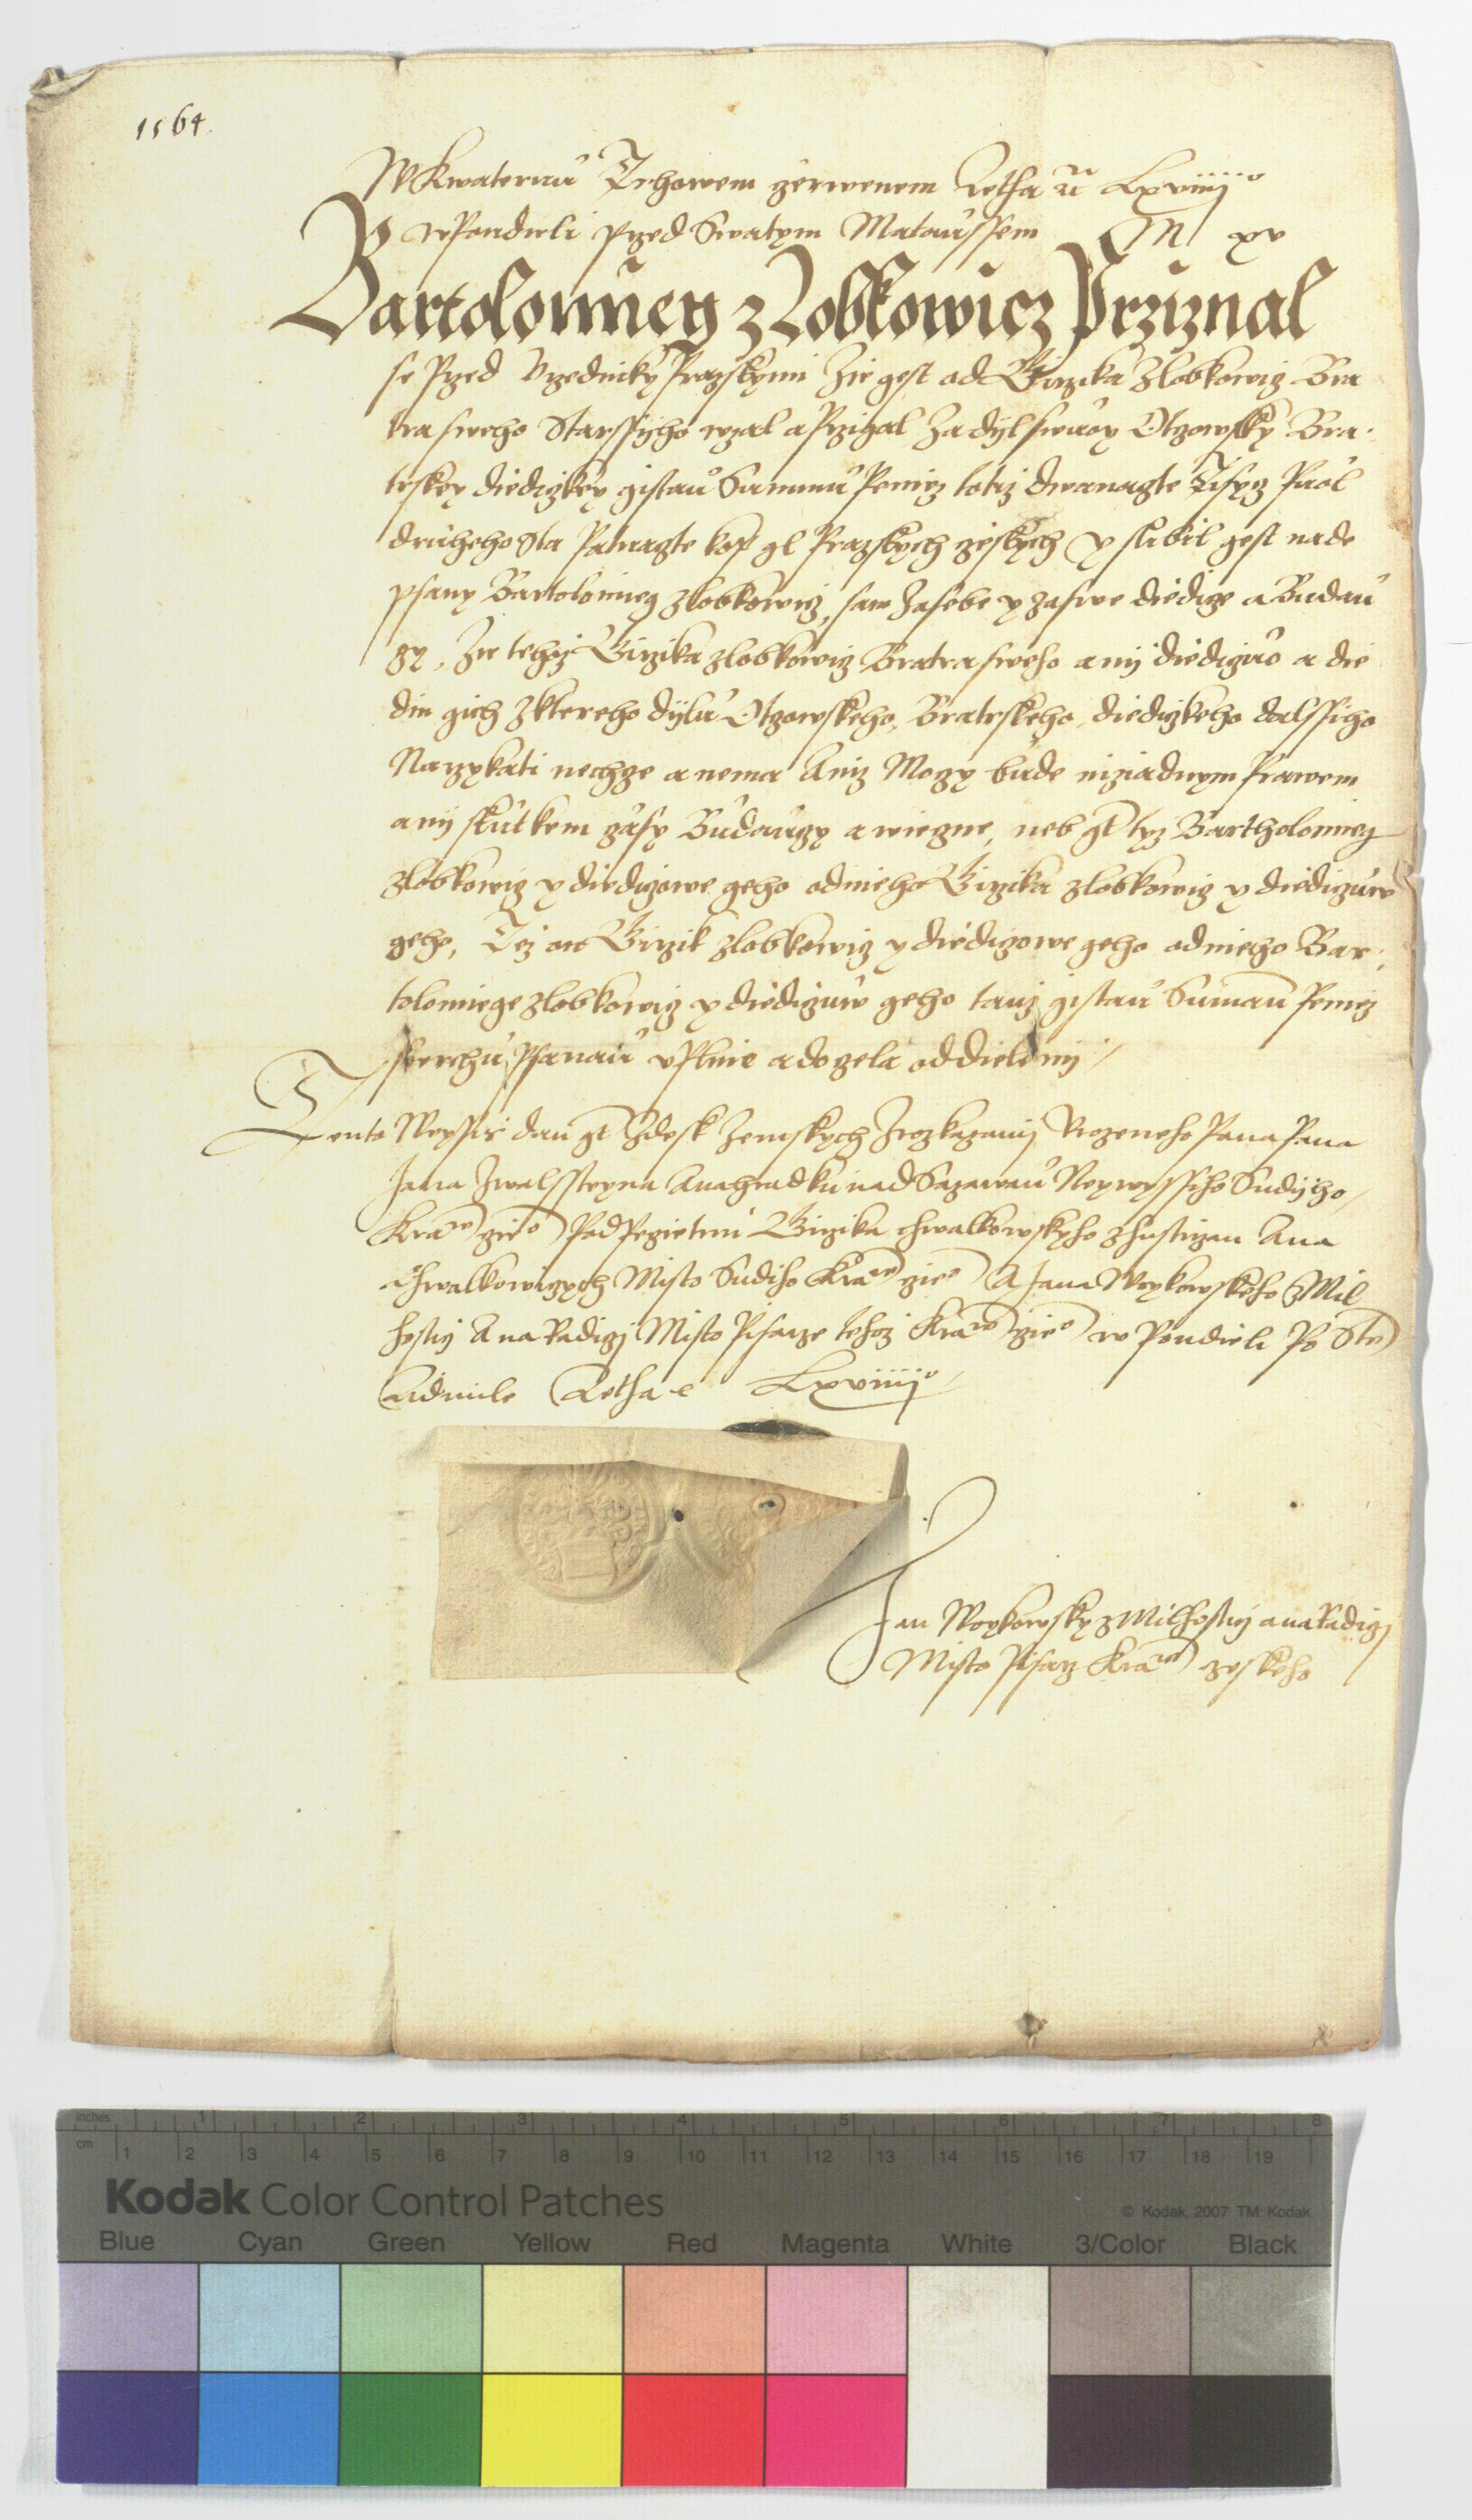 1564.
W Kwaternu Trhowem zerwenem Letha etc Lxviiijo
w Pondieli przed Swatym Mataussem M xv
Bartolomieg z Lobkowicz Przyznal
se Przed Vrzedniky Prazskymi Zie gest od Girzika Zlobkowicz Bra
tra sweho Starssyho wzal a Przigal Za dyl swuoy Otczowsky Bra-
trskey diediczkey gistau Summu Peniez totiz dwanagte Tisycz Puol
druheho Sta Patnagte kop gr Prazskych czeskych y slibil gest nade
psany Bartolomieg zlobkowicz, sam Zasebe y zaswe diedicze a Budau
czy, Zie tehoz Girzika zlobkowicz Bratra sweho any diediczuo a die
din gich Zktereho dylu Otczowskeho, Bratrskeho, diediczkeho dalssiho
Narzykati nechcze a nema Aniz Moczy bude niziadnym Prawem
any skutkem czasy Budauczy a wieczne, neb gt tyz Bartholomieg
zlobkowicz y diediczowe geho odnieho Girzika zlobkowicz y diediczuw
geho, Tez on Girzik zlobkowicz y diediczowe geho odnieho Bar-
tolomiege zlobkowicz y diediczuw geho tauz gistau Sumau Peniez
swrchu Psanau vplnie a doczela oddieleny
Tento Weypis dan gt Zdesk Zemskych Zrozkazanij Vrozeneho Pana Pana
Jana Zwalssteyna Anahradku nad Sazawau Neywyssiho Sudijho
Kralo czieo Pod Peczietmi Girzika Chwalkowskyho zhusticzan Ana
Chwalkowiczych Misto Sudiho Kralo czieo A Jana Woykowskeho zMil
hostij Ana Radiczy Misto Pisarze tehoz Kralo czieo w Pondieli Po Ste
Ludmile Letha etc Lxviiijo
Jan Woykowsky zMilhostij ana Radiczj
Misto Pisarz Kralo czeskeho
inches 1 2 3 4 5 6 7 8
cm 1 2 3 4 5 6 7 8 9 10 11 12 13 14 15 16 17 18 19
Kodak Color Control Patches
© Kodak, 2007 TM: Kodak
Blue Cyan Green Yellow Red Magenta White 3/Color Black